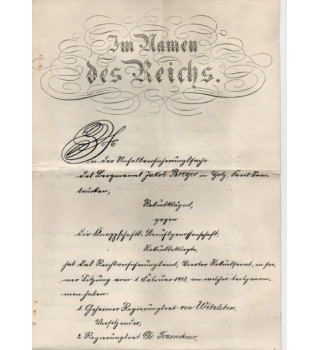 Im Namen
des Reichs.
In der Unfallversicherungssache
des Bergmanns Jakob in Kreis Saar-
brücken,
Rekursklägers,
gegen
die Knappschafts-Berufsgenossenschaft,
Rekursbeklagte,
hat das Reichsversicherungsamt, Rekurssenat, in sei-
ner Sitzung vom 5. Februar 1912, an welcher teilgenom-
men haben:
1. Geheimer Regierungsrat von
Vorsitzender,
2. Regierungsrat Dr.